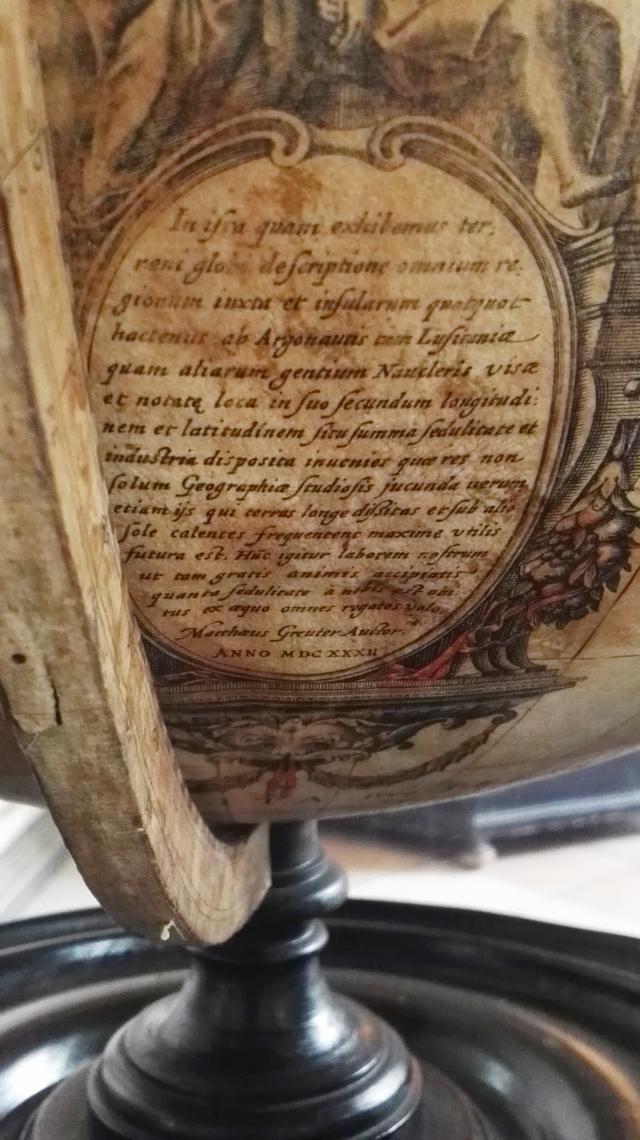 In ista quam exhibemus ter,
reni globi descriptione omnium re,
gionum iuxta et insularum quotquot
hactenus ab Argonautis tam Lusitaniæ
quam aliarum gentium Naucleris visæ
et notatę loca in suo secundum longitudi:
nem et latitudinem situ summa sedulitate et
industria disposita inuenies quæ res non
solum Geographiæ studiosis jucunda uerum
etiam ijs qui terras longe dissitas et sub alio
sole calentes frequentent maxime vtilis
futura est. Huc igitur laborem nostrum
ut tam gratis animis accipiatis
quanta sedulitate a nobis est obi
tus ex æquo omnes rogatos volo.
Matthæus Greuter Auctor.
ANNO MDCXXXII